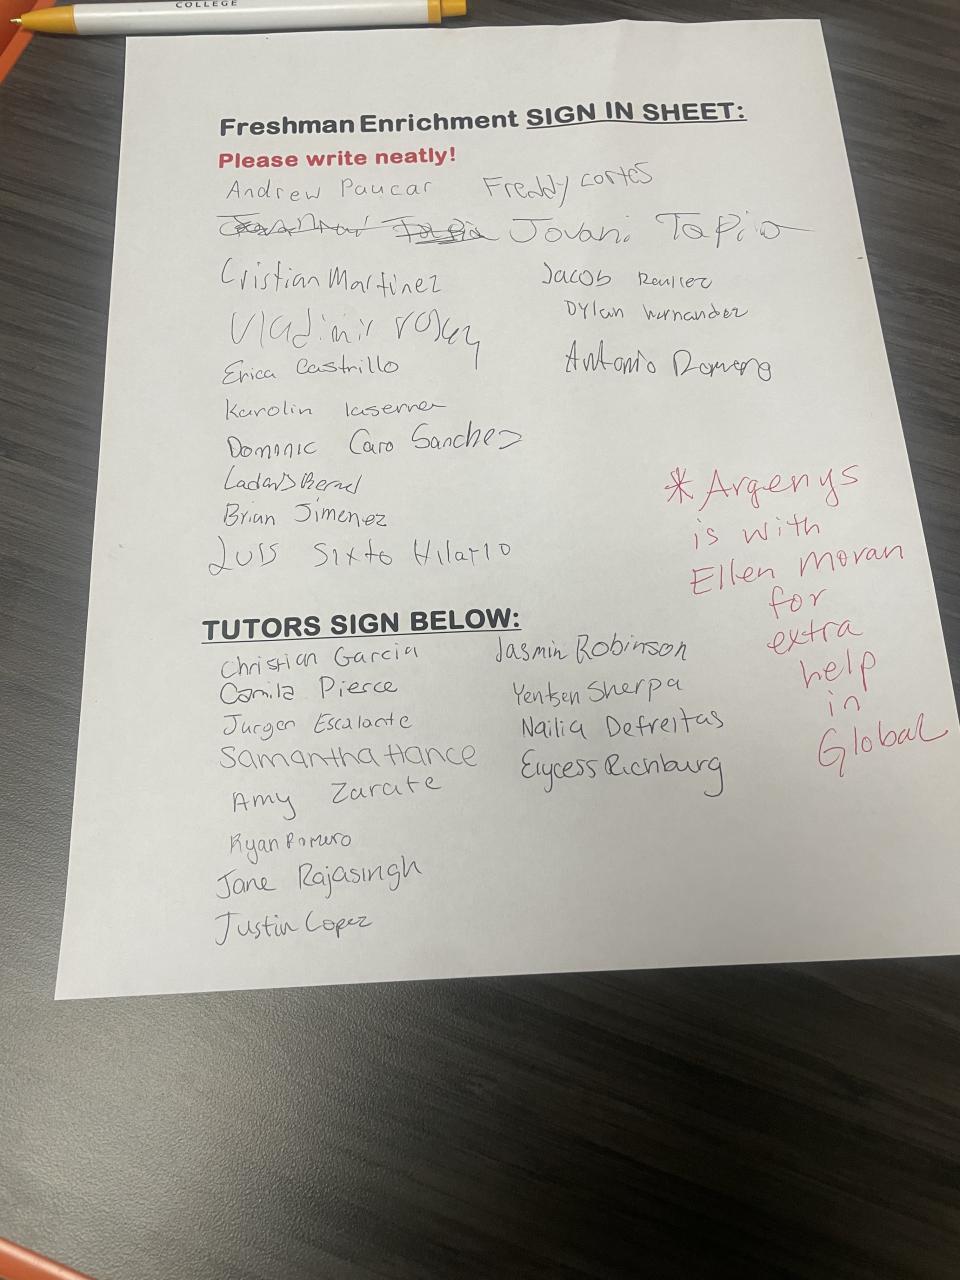 COLLEGE
Freshman Enrichment SIGN IN SHEET:
Please write neatly!
Andrew Paucar Freddy cortes
Jovani Tapia
Cristian Martinez
Jacob
Vladimir
Dylan hernandez
Erica Castrillo
Antonio Romero
Karolin laserna
Dominic Caro Sanchez
Brian Jimenez
Luis Sixto Hilario
* Argenys
is with
Ellen Moran
for
extra
help
in
Global
TUTORS SIGN BELOW:
Christian Garcia
Camila Pierce
Jurgen Escalante
Samantha Hance
Amy Zarate
Ryan Romero
Jane Rajasingh
Justin Lopez
Jasmin Robinson
Yentsen Sherpa
Nailia Defreitas
Elycess Richburg